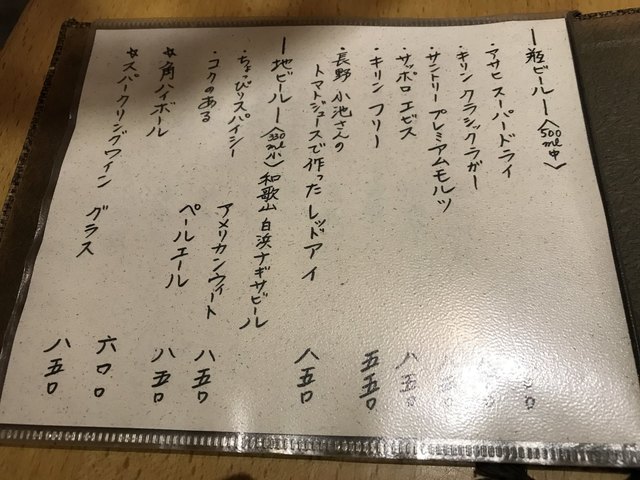 ー瓶ビールー〈500ml中〉
・アサヒ スーパードライ
・キリン クラシックラガー
・サントリー プレミアムモルツ
・サッポロ エビス 八五〇
・キリン フリー 五五〇
・長野 小池さんの
トマトジュースで作った レッドアイ 八五〇
ー地ビールー〈330ml小〉和歌山 白浜ナギサビール
・ちょっぴりスパイシー アメリカンウィート 八五〇
・コクのある ペールエール 八五〇
☆角ハイボール 六〇〇
☆スパークリングワイン グラス 八五〇